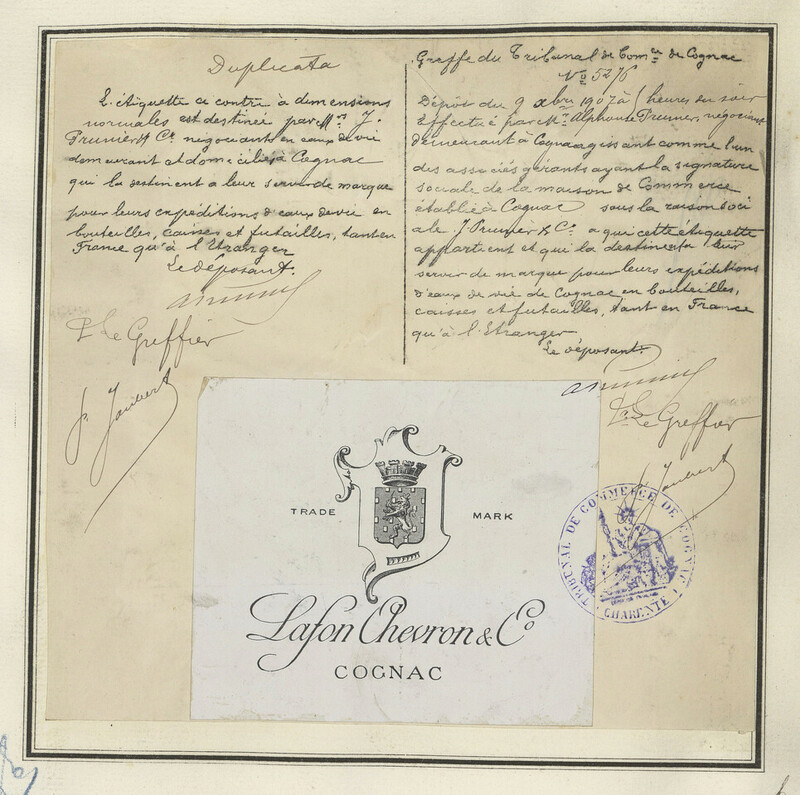 Duplicata
L'étiquette ci contre à dimensions
normales est destinée par M.rs J.
Prunier & Cie négociants en eaux de vie
demeurant et domiciliés à Cognac
qui la destinent a leur servir de marque
pour leurs expéditions d'eaux de vie en
bouteilles, caisses et futailles, tant en
France qu'à l'Etranger
Le déposant.
Le Greffier
J. Joubert
Greffe du Tribunal de Comce de Cognac
No 5276
Dépôt du 9 xbre 1907 à 5 heures du soir
Effectué par Mr Alphonse Prunier, négociant
demeurant à Cognac agissant comme l'un
des associés gérants ayant la signature
sociale de la maison de Commerce
établie à Cognac sous la raison soci
ale J. Prunier & Co. a qui cette étiquette
appartient et qui la destinent a leur
servir de marque pour leurs expéditions
d'eaux de vie de Cognac en bouteilles,
caisses et futailles, tant en France
qu'à l'Etranger
Le déposant.
Le Greffier
J. Joubert
TRADE MARK
Lafon Chevron & Co
COGNAC
TRIBUNAL DE COMMERCE DE COGNAC
CHARENTE